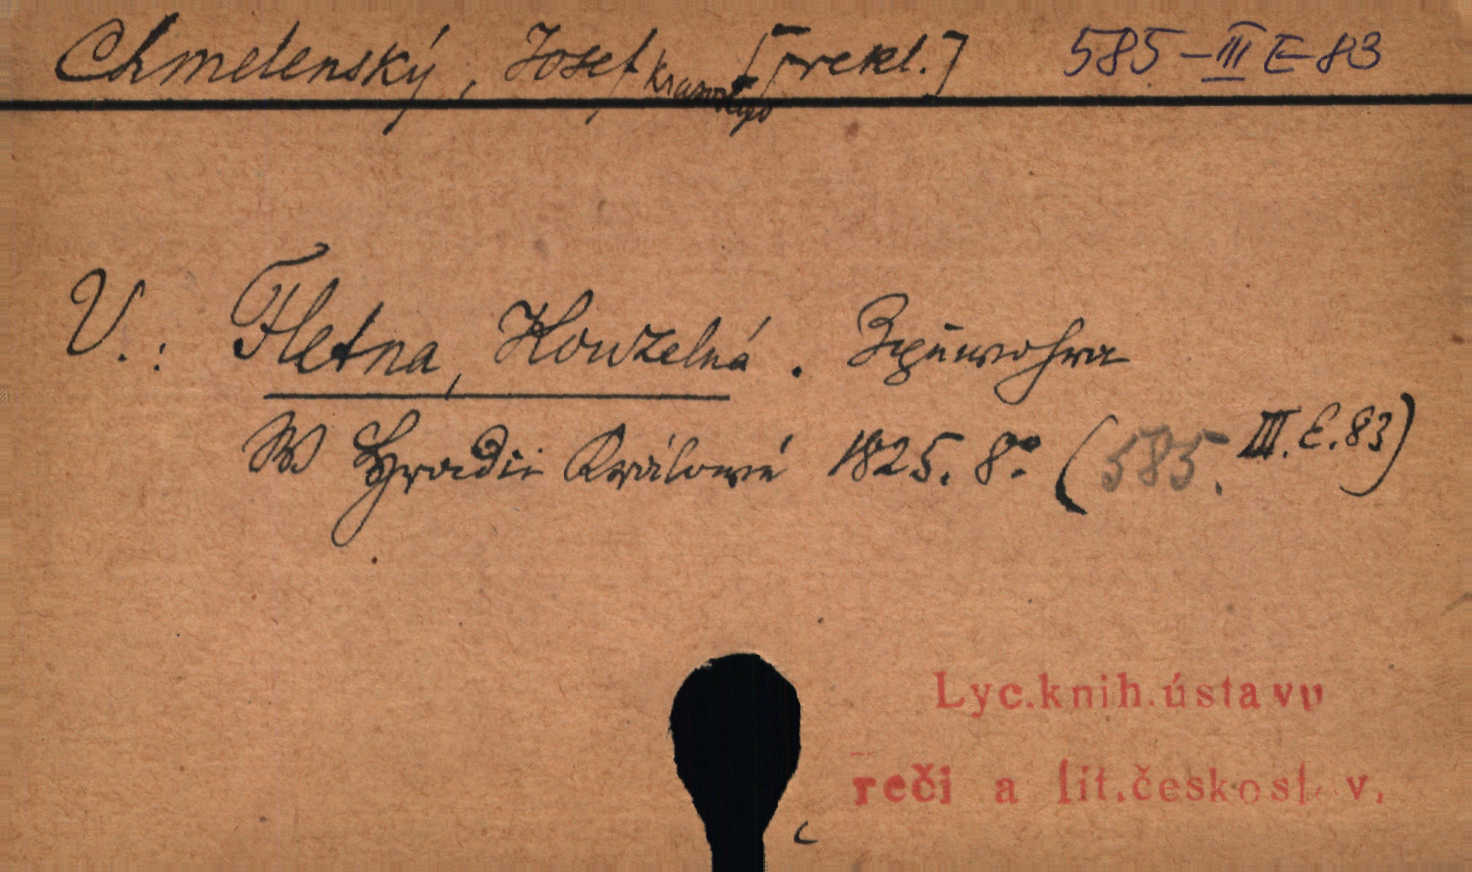 Chmelenský, Josef Krasoslav [překl.] 585-III E 83
V.: Fletna, Kouzelná. Zpěwohra
W Hradci Králowé 1825. 8°. (585. III. E. 83)
Lyc. knih. ústavu
řeči a lit. českosl v.